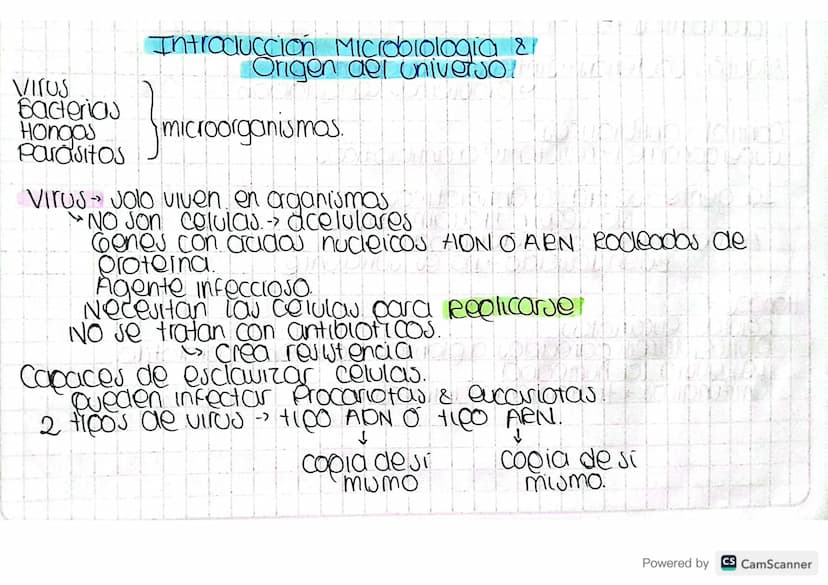 Introducción Microbiologia &
Origen del universo.
Virus
Bacterias
Hongos
Parásitos
microorganismos.
Virus → solo viven en organismos
↳ NO son celulas. → acelulares
Genes con acidos nucleicos ADN Ó ARN Rodeados de
proteina.
Agente infeccioso.
Necesitan las celulas para Replicarse
NO se tratan con antibioticos.
↳ crea resistencia
Capaces de esclavizar celulas.
pueden infectar Procariotas & eucariotas.
2 tipos de virus → tipo ADN Ó tipo ARN.
↓ ↓
copia de si copia de si
mismo mismo.
Powered by CS CamScanner